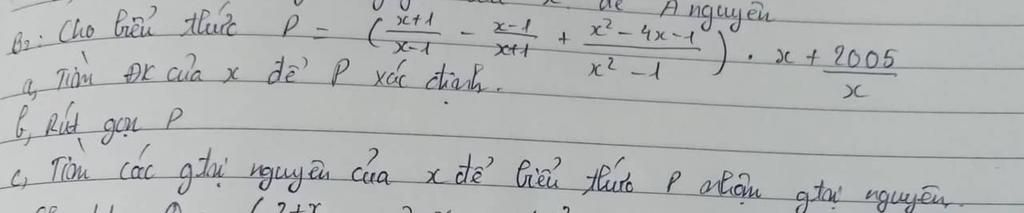 để A nguyên
B2: Cho biểu thức P = (\frac{x+1}{x-1} - \frac{x-1}{x+1} + \frac{x² - 4x - 1}{x² - 1}) . x + \frac{2005}{x}
a, Tìm ĐK của x để P xác định.
b, Rút gọn P
c, Tìm các gtrị nguyên của x để biểu thức P nhận gtrị nguyên.